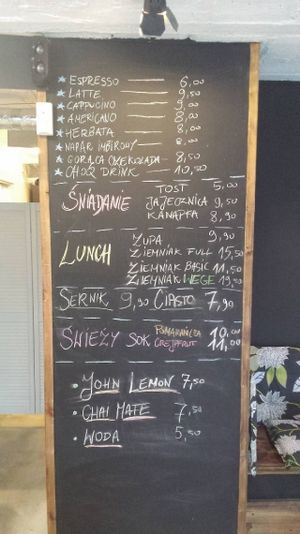 ESPRESSO 6,00
LATTE 9,50
CAPPUCINO 9,00
AMERICANO 8,00
HERBATA 8,00
NAPAR IMBIROWY 8,00
GORĄCA CZEKOLADA 8,50
CHOQ DRINK 10,50
ŚNIADANIE TOST 5,00
JAJECZNICA 9,50
KANAPKA 8,90
LUNCH ZUPA 9,90
ZIEMNIAK FULL 15,50
ZIEMNIAK BASIC 11,50
ZIEMNIAK WEGE 13,50
SERNIK 9,90 CIASTO 7,90
ŚWIEŻY SOK POMARAŃCZA 10,00
GREJPFRUT 11,00
JOHN LEMON 7,50
CHAI MATE 7,50
WODA 5,50